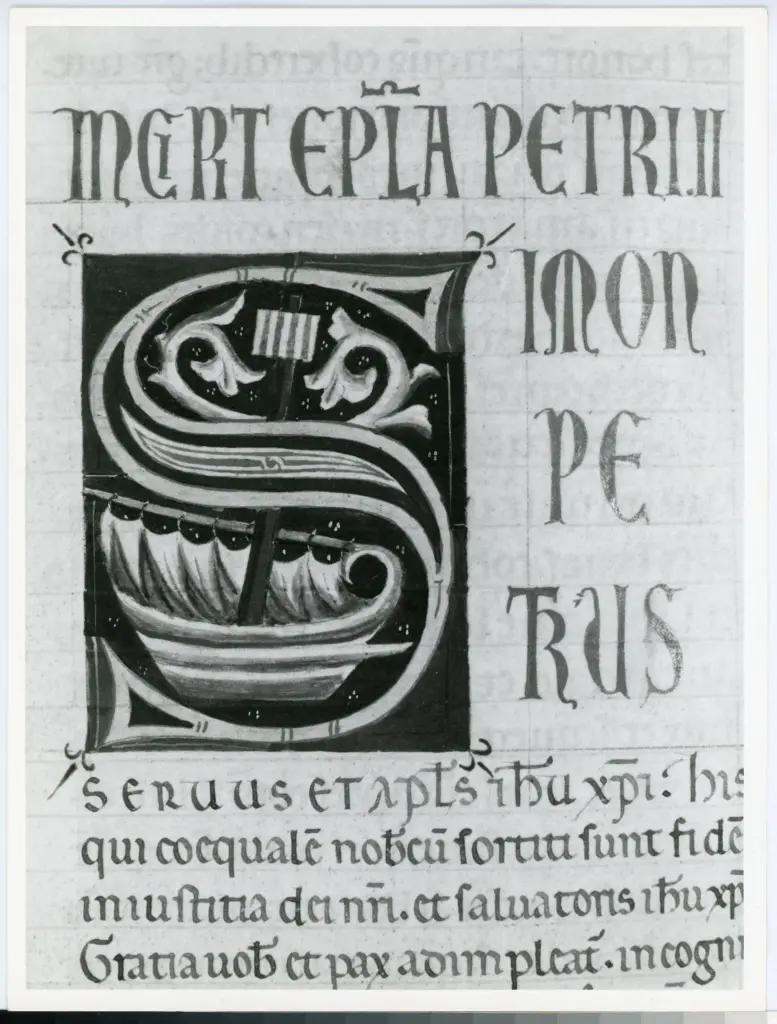 INCIPIT EPL̄A PETRI.II
SIMON
PE
TRUS
SERUUS ET APL̄S ih̄u xp̄i: his
qui coequalē nobcū̄ sortiti sunt fidē
in iustitia dei nr̄i. et saluatoris ih̄u xp̄
Gratia uob̄ et pax adimpleat̄. in cogni